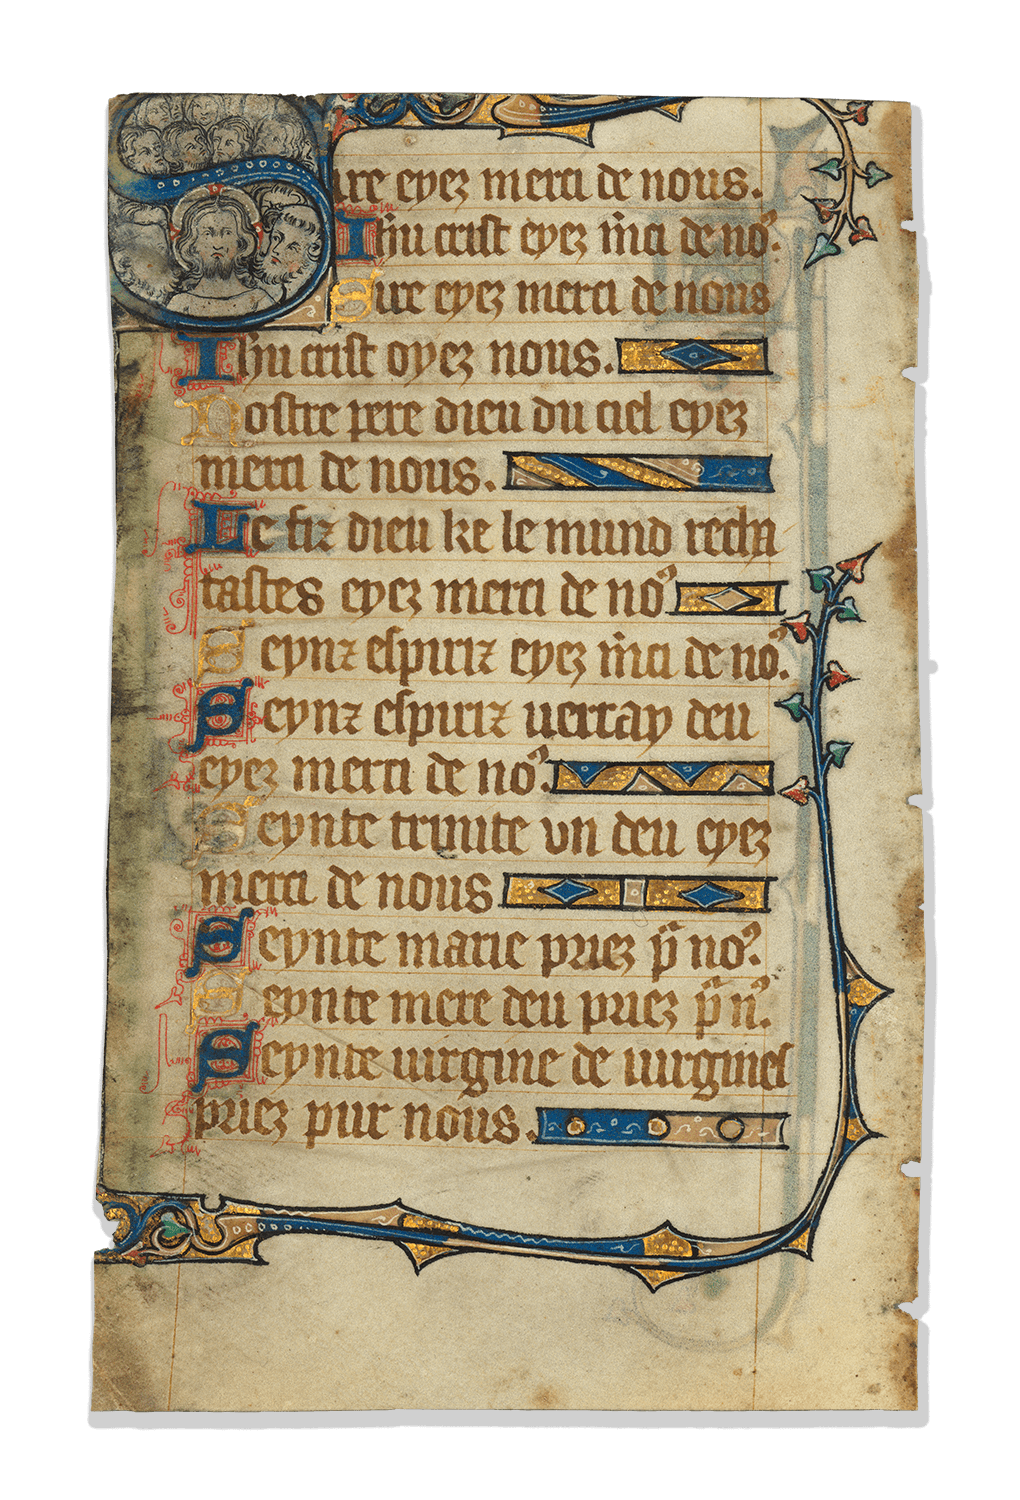 Sire eyez merci de nous.
Ihũ crist eyez m̃ci de noꝰ.
Sire eyez merci de nous
Ihũ crist oyez nous.
Nostre pere dieu du ciel eyez
merci de nous.
Le fiz dieu ke le mund recha
tastes eyez merci de noꝰ
Seynz espiriz eyez m̃ci de noꝰ.
Seynz espiriz uerray deu
eyez merci de noꝰ.
Seynte trinite un deu eyez
merci de nous
Seynte marie priez p̃ noꝰ.
Seynte mere deu priez p̃ nꝰ.
Seynte uirgine de uirgines
priez pur nous.